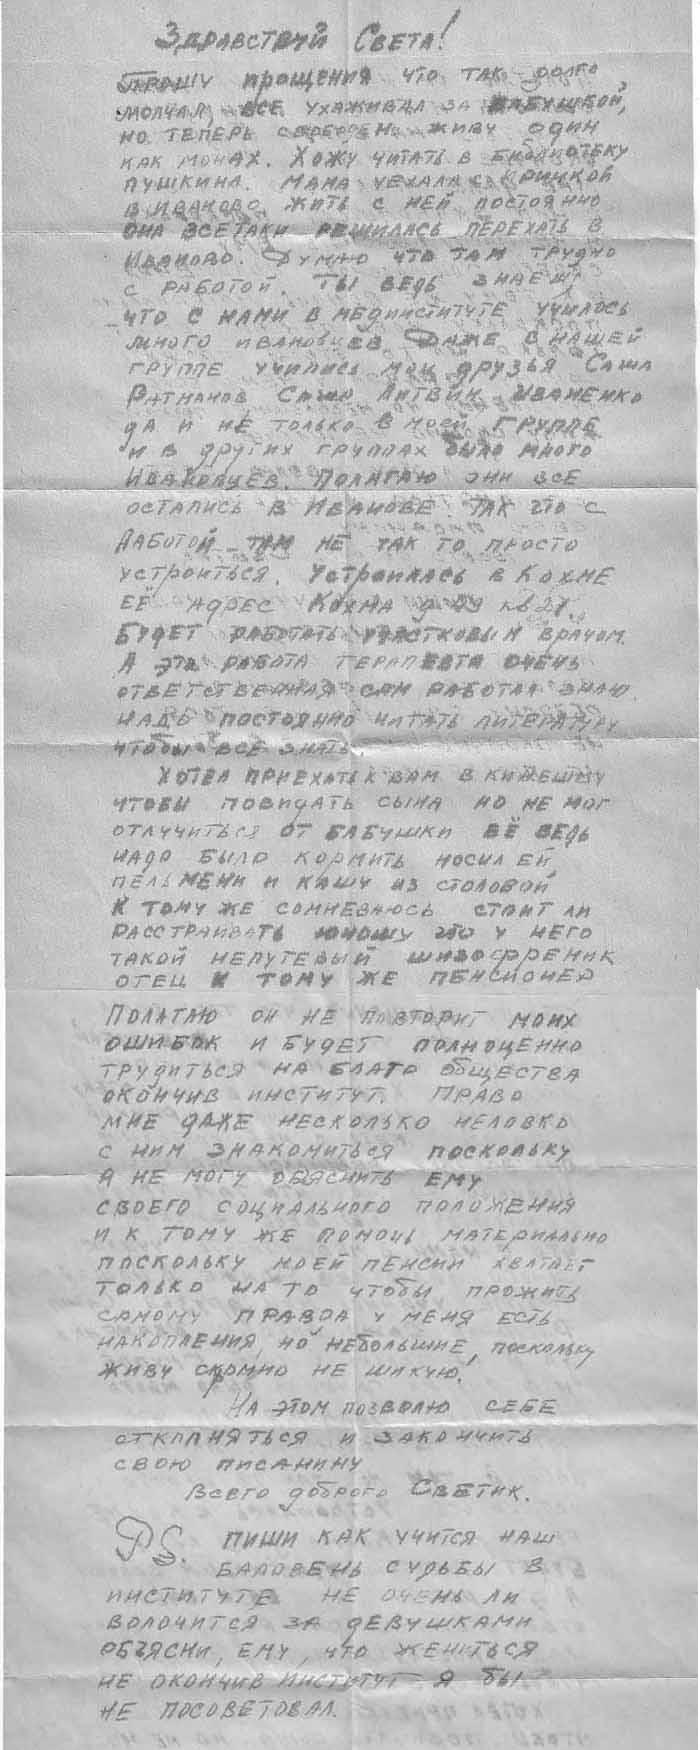 Здравствуй Света!
Прошу прощения что так долго
молчал, все ухаживал за бабушкой,
но теперь свободен. живу один
как монах. Хожу читать в библиотеку
Пушкина. Мама уехала с Иринкой
в Иваново жить с ней постоянно
она всетаки решилась переехать в
Иваново. Думаю что там трудно
с работой. Ты ведь знаешь
что с нами в мединституте училось
много ивановцев Даже в нашей
группе учились мои друзья Саша
Ратманов Саша Литвин Иваненко
да и не только в моей группе
и в других группах было много
Ивановцев. Полагаю они все
остались в Иванове. Так что с
работой там не так то просто
устроиться. Устроилась в Кохме
её адрес Кохма кв 21.
Будет работать участковым врачом.
А эта работа терапевта очень
ответственная сам работал знаю.
надо постоянно читать литературу
чтобы все знать.
Хотел приехать к вам в Кинешму
чтобы повидать сына но не мог
отлучиться от бабушки её ведь
надо было кормить носил ей
пельмени и кашу из столовой
К тому же сомневаюсь стоит ли
расстраивать юношу что у него
такой непутевый шизофреник
отец к тому же пенсионер
Полагаю он не повторит моих
ошибок и будет полноценно
трудиться на благо общества
окончив институт. Право
мне даже несколько неловко
с ним знакомиться поскольку
я не могу обяснить ему
своего социального положения
и к тому же помочь материально
поскольку моей пенсии хватает
только на то чтобы прожить
самому правда у меня есть
накопления, но небольшие, поскольку
живу скромно не шикую.
На этом позволю себе
откланяться и закончить
свою писанину
Всего доброго Светик.
PS. Пиши как учится наш
баловень судьбы в
институте не очень ли
волочится за девушками
объясни, ему, что жениться
не окончив институт я бы
не посоветовал.